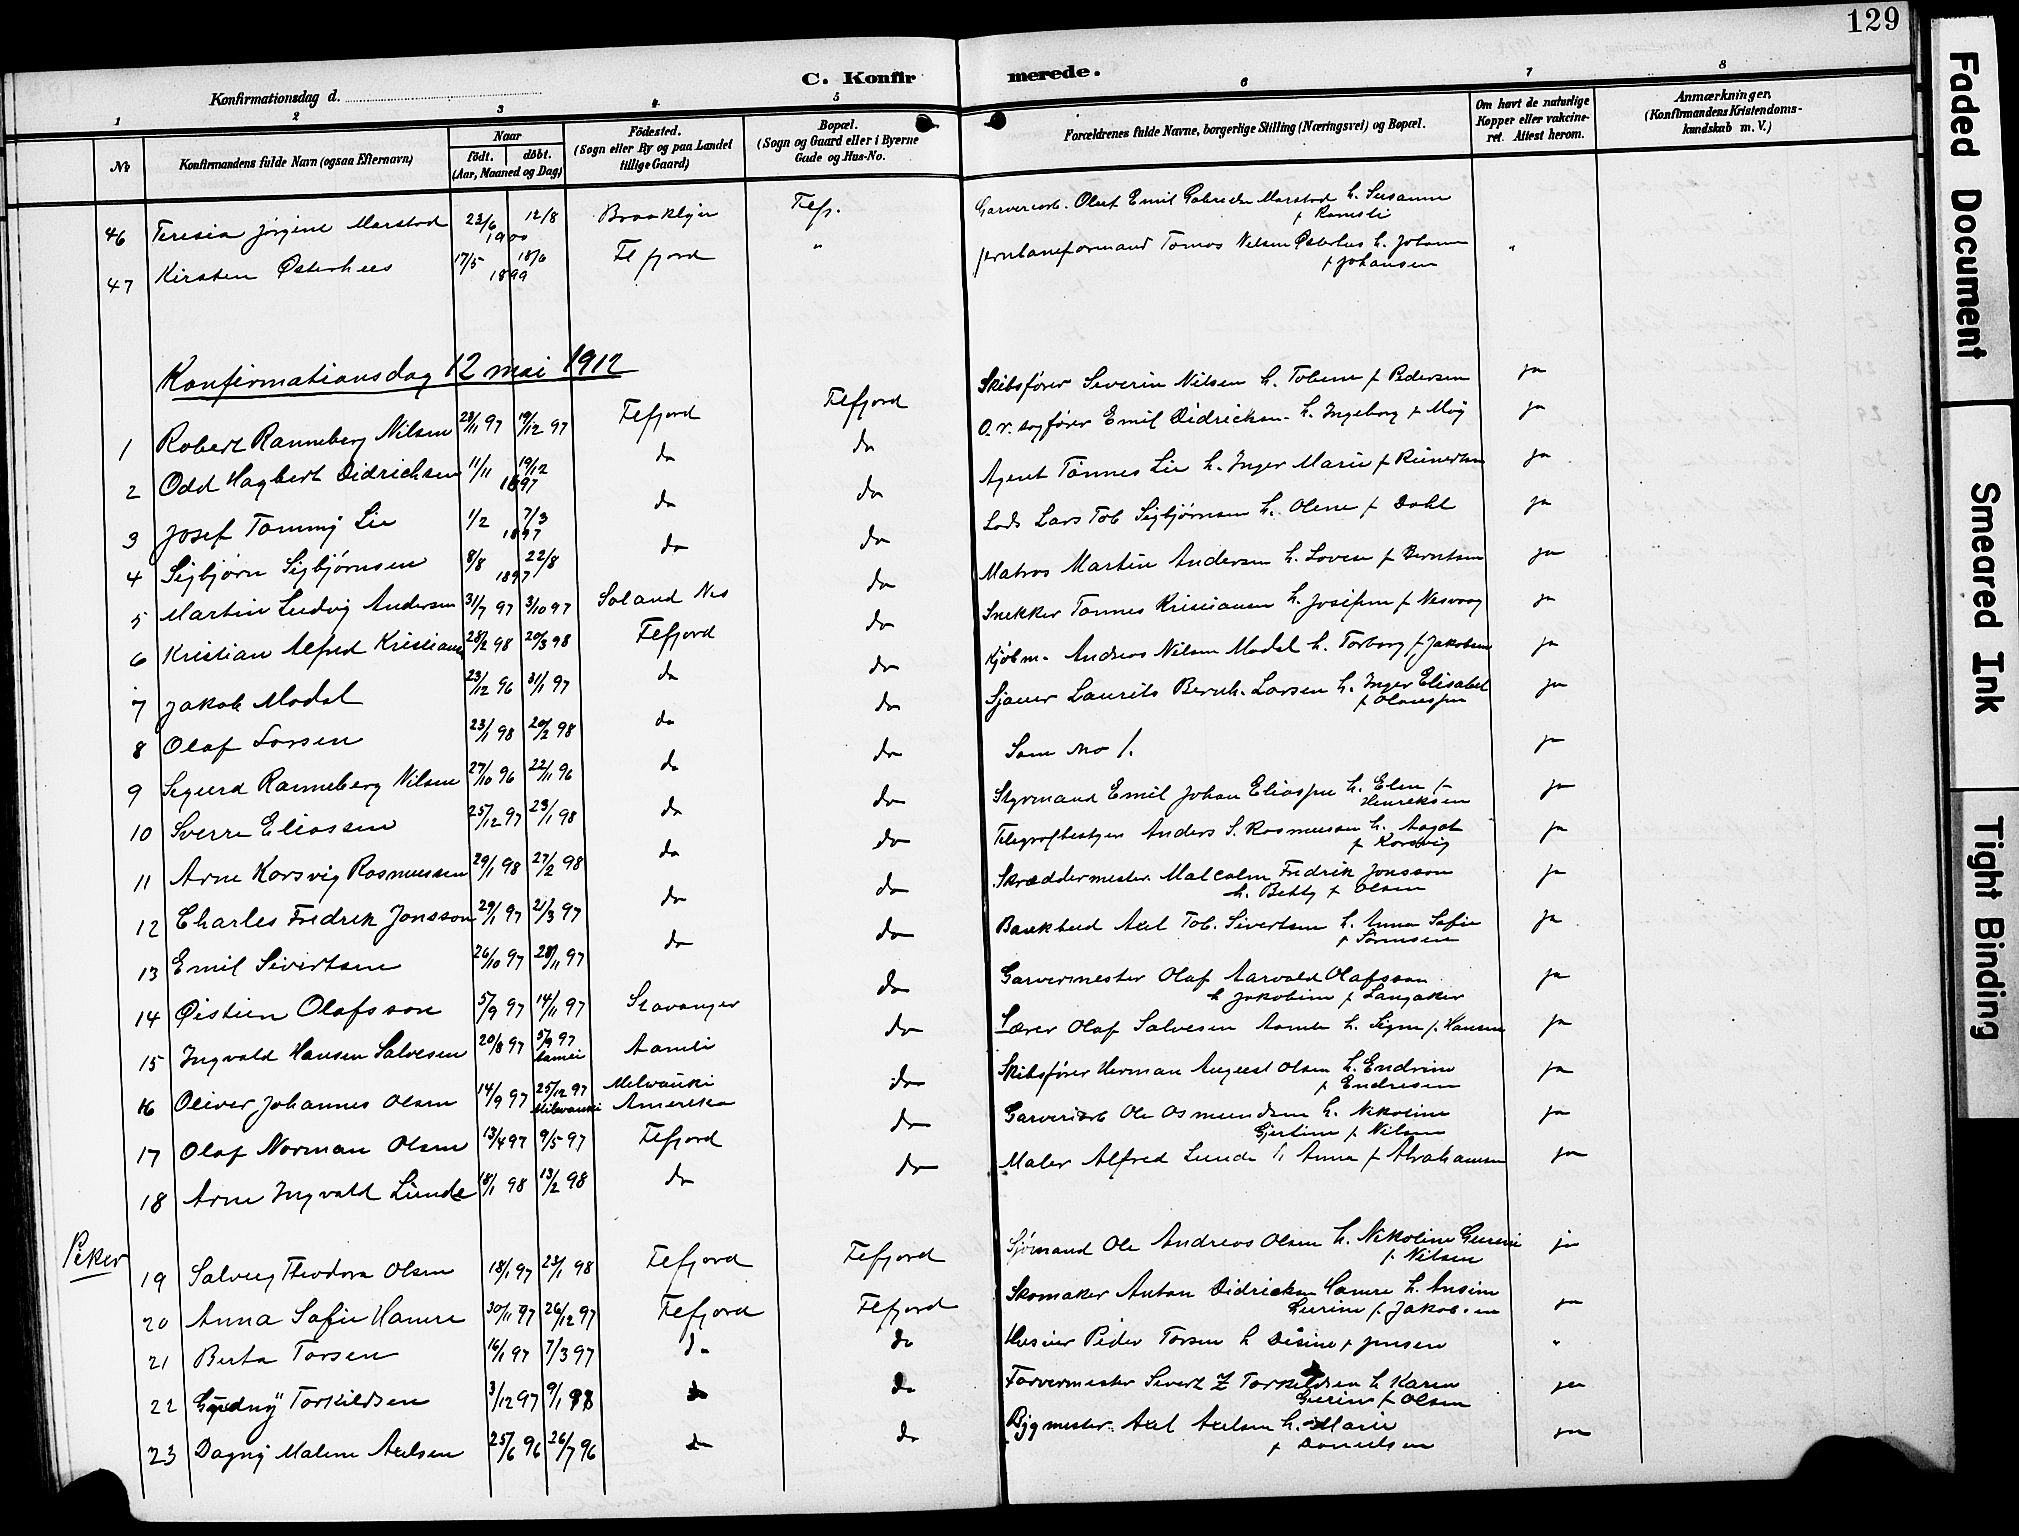 129
C. Konfirmerede.
Konfirmationsdag d.
1 2 3 4 5 6 7 8
No Konfirmandens fulde Navn (ogsaa Efternavn)
Naar født. døbt. (Aar, Maaned og Dag)
Fødested. (Sogn eller By og paa Landet tillige Gaard)
Bopæl. (Sogn og Gaard eller i Byerne Gade og Hus-No.
Forældrenes fulde Navne, borgerlige Stilling (Næringsvei) og Bopæl.
Om havt de naturlige Kopper eller vakcineret. Attest herom.
Anmærkninger, (Konfirmandens Kristendomskundskab m. V.)
46 Teresia Jørgine Marstad 23/6 12/8 1900 Brooklyn Flfj. Garveriarb. Oluf Emil Gabrielsen Marstad h. Susanne f Ramsli
47 Kirsten Østerhus 17/5 18/6 1899 Flfjord " Jernbaneformand Tomas Nilsen Østerhus h. Johanne f Johansen "
Konfirmationsdag 12 mai 1912
1 Robert Ranneberg Nilsen 23/11 97 19/12 97 Flfjord Flfjord Skibsfører Severin Nilsen h. Tobine f Pedersen ja
2 Odd Hagbert Didrichsen 11/11 19/12 1897 do do O.r. sagfører Emil Didrichsen h. Ingeborg f Møy ja
3 Josef Tommy Lie 1/2 7/3 1897 do do Agent Tønnes Lie h. Inger Marie f Reinertsen ja
4 Sigbjørn Sigbjørnsen 8/8 22/8 1897 do do Lods Lars Tob Sigbjørnsen h. Olene f Dahl ja
5 Martin Ludvig Andersen 31/7 97 3/10 97 Soland Nes do Matros Martin Andersen h. Lovise f Berntsen ja
6 Kristian Alfred Kristiansen 28/2 98 20/3 98 Flfjord do Snekker Tønnes Kristiansen h. Josefine f Nesvaag ja
7 Jakob Modal 23/12 96 31/1 97 do do Kjøbm. Andreas Nilsen Modal h. Torborg f Jakobsen ja
8 Olaf Larsen 23/1 98 20/2 98 do do Sjauer Laurits Bernh. Larsen h. Inger Elisabet f Olausen ja
9 Sigurd Ranneberg Nilsen 27/10 96 22/11 96 do do Som No 1. ja
10 Sverre Eliassen 25/12 97 23/1 98 do do Styrmand Emil Johan Eliassen h. Elen f. Henriksen ja
11 Arne Korsvig Rasmussen 29/1 98 27/2 98 do do Telegrafbestyrer Anders S. Rasmussen h. Aagot f Korsvig ja
12 Charles Fredrik Jonsson 29/1 97 21/3 97 do do Skræddermester Malcolm Fredrik Jonsson h. Betty f Olsen ja
13 Emil Sivertsen 26/10 97 28/11 97 do do Bankbud Axel Tob. Sivertsen h. Anna Sofie f Sørensen ja
14 Øistein Olafsson 5/9 97 14/11 97 Stavanger do Garvermester Olaf Aarvold Olafsson h Jakobine f Langaker ja
15 Ingvald Hansen Salvesen 20/8 97 5/9 97 Aamli Aamli do Lærer Olaf Salvesen Aamli h. Signe f. Hansen ja
16 Oliver Johannes Olsen 14/9 97 25/12 97 Milwauki Melwauki Amerika do Skibsfører Herman August Olsen h. Endrine f Endresen ja
17 Olaf Norman Olsen 13/4 97 9/5 97 Flfjord do Garveriarb Ole Osmundsen h. Nikoline Gjertine f Nilsen ja
18 Arne Ingvald Lunde 18/1 98 13/2 98 do do Maler Alfred Lunde h Anna f Abrahamsen ja
Piker
19 Solveig Theodora Olsen 18/1 97 23/1 98 Flfjord Flfjord Sjømand Ole Andreas Olsen h. Nikoline Gurine f. Nilsen ja
20 Anna Sofie Hamre 30/11 97 26/12 97 Flfjord Flfjord Skomaker Anton Didriksen Hamre h. Ansine Gurine f. Jakobsen ja
21 Berta Torsen 16/1 97 7/3 97 do do Husier Peder Torsen h Disine f Jensen "
22 Gudny Torkildsen 3/12 97 9/1 98 do do Farvermester Sivert Z Torkildsen h Karen Gurine f Olsen ja
23 Dagny Malene Axelsen 25/6 96 26/7 96 do do Bygmester Axel Axelsen h. Marie f Danielsen ja
Faded Document
Smeared Ink
Tight Binding